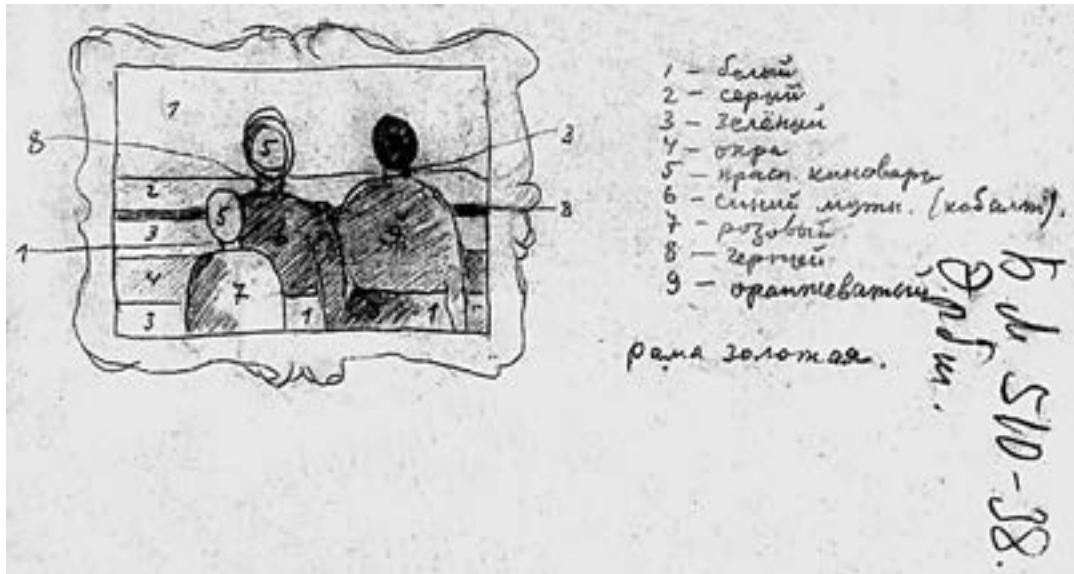 1
5
8
3
2
5
8
3
9
1
4
7
3
1
1
1 – белый
2 – серый
3 – зелёный
4 – охра
5 – красн. киноварь
6 – синий мутн. (кобальт).
7 – розовый
8 – черный
9 – оранжеватый
рама золотая.
510-38.